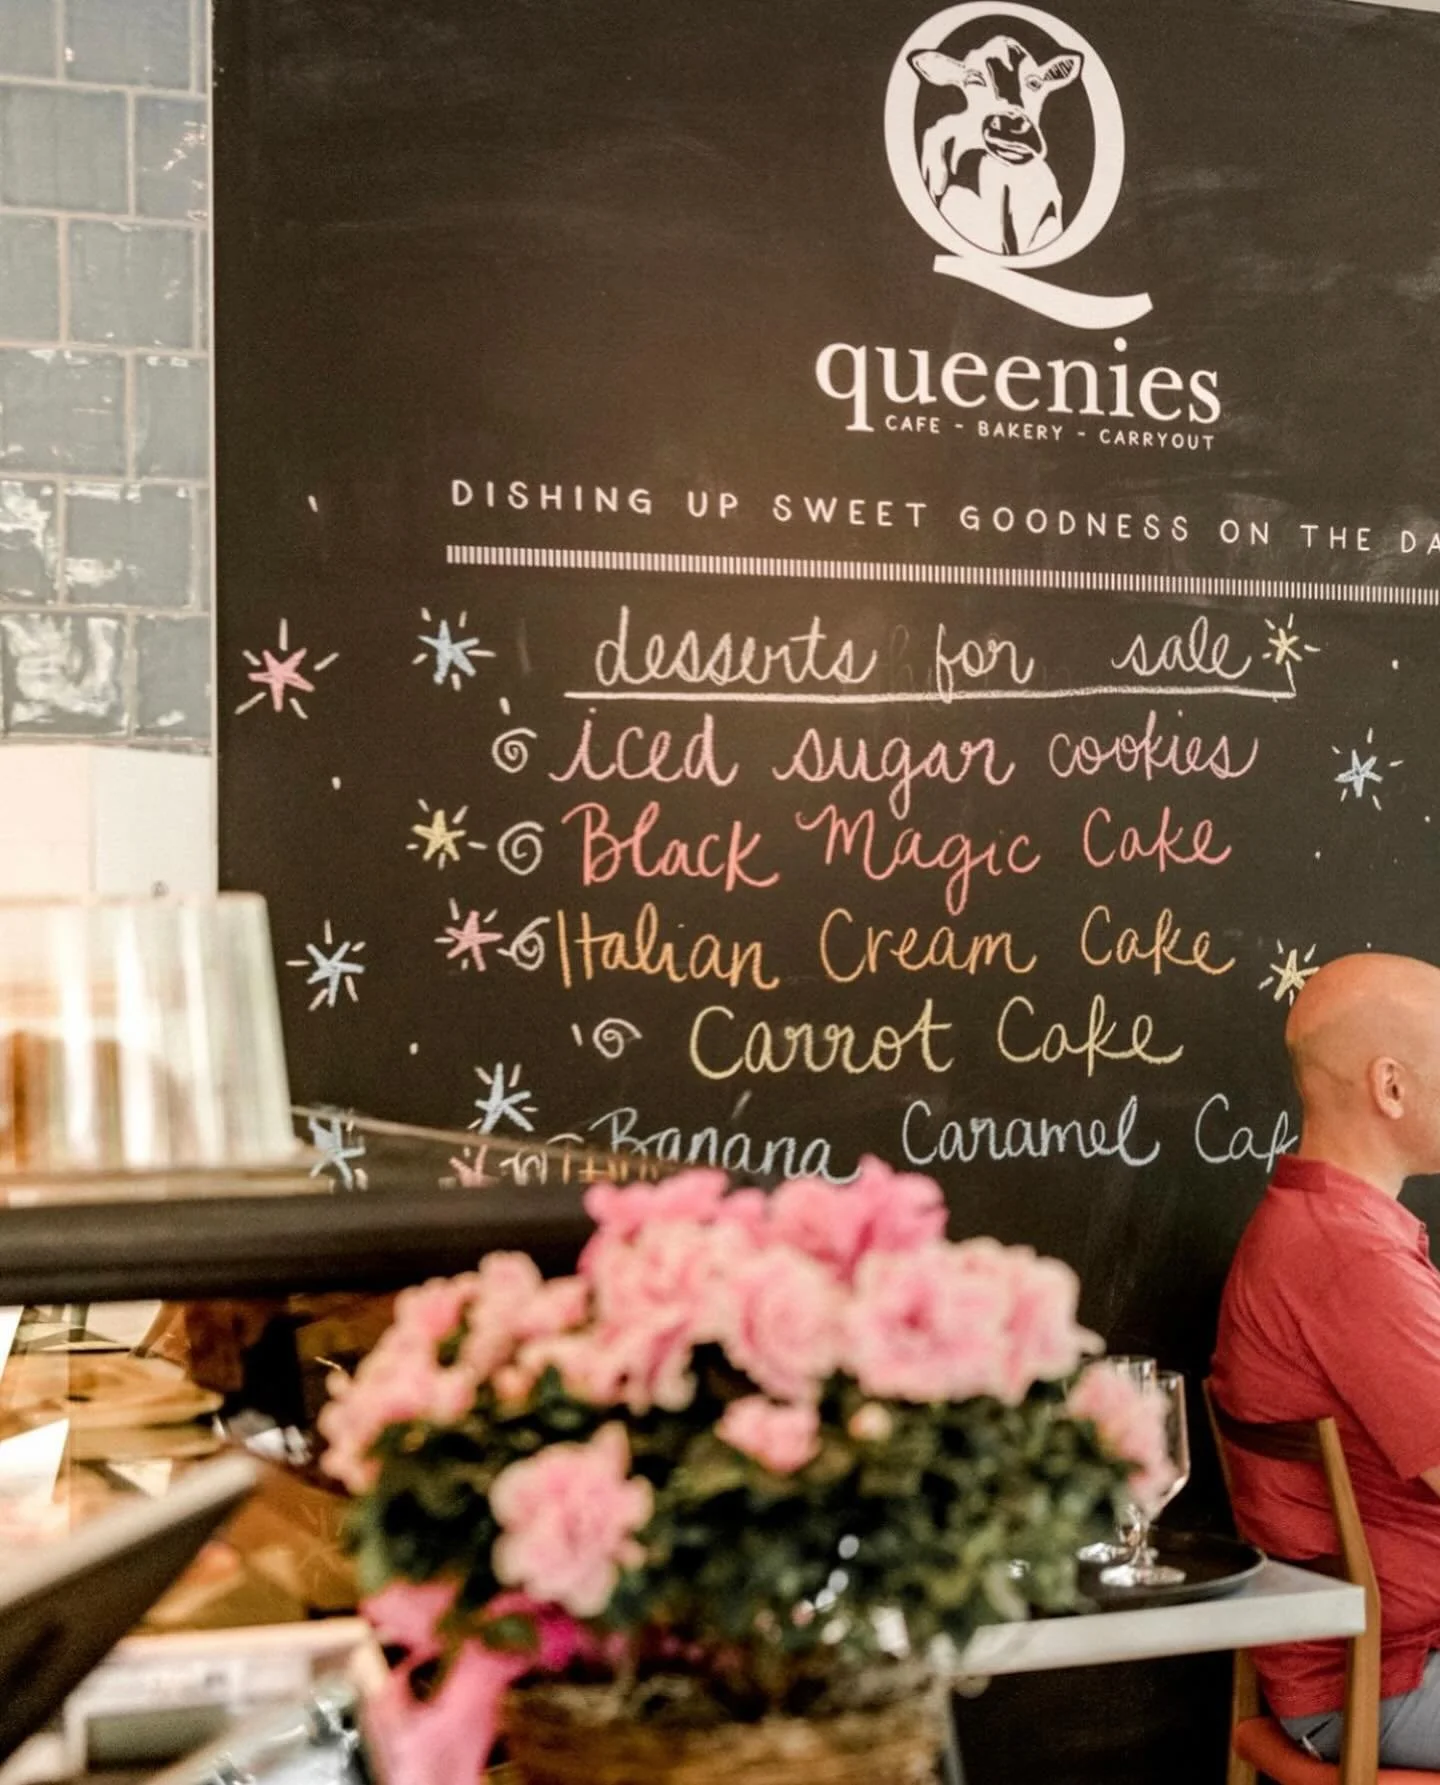 queenies
CAFE - BAKERY - CARRYOUT
DISHING UP SWEET GOODNESS ON THE DA
desserts for sale
iced sugar cookies
Black Magic Cake
Italian Cream Cake
Carrot Cake
Banana Caramel Cak